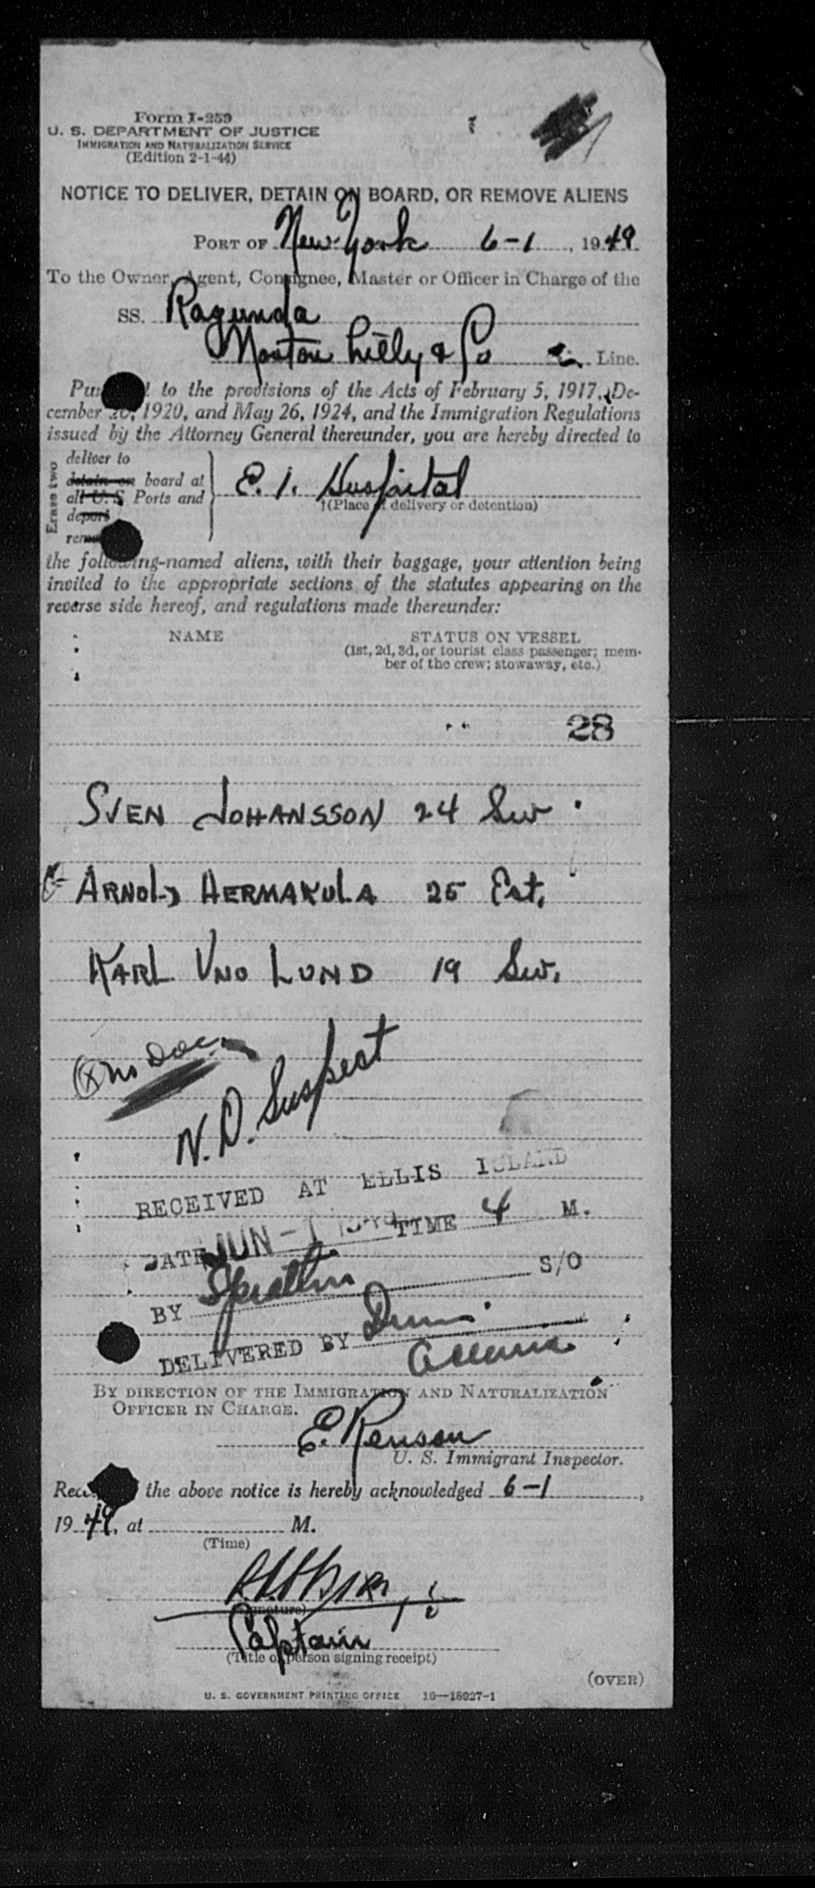 Form I-259
U. S. DEPARTMENT OF JUSTICE
IMMIGRATION AND NATURALIZATION SERVICE
(Edition 2-1-44)
NOTICE TO DELIVER, DETAIN ON BOARD, OR REMOVE ALIENS
PORT OF New York 6-1, 1949
To the Owner, Agent, Consignee, Master or Officer in Charge of the
SS. Ragunda
Norton Lilly & Co Line.
to the provisions of the Acts of February 5, 1917, De-
cember 26, 1920, and May 26, 1924, and the Immigration Regulations
issued by the Attorney General thereunder, you are hereby directed to
Erase two
deliver to
detain on board at
all U. S. Ports and
deport
E. I. Hospital
†(Place of delivery or detention)
the following-named aliens, with their baggage, your attention being
invited to the appropriate sections of the statutes appearing on the
reverse side hereof, and regulations made thereunder:
NAME STATUS ON VESSEL
(1st, 2d, 3d, or tourist class passenger; mem-
ber of the crew; stowaway, etc.)
28
SVEN JOHANSSON 24 Sw
ARNOLD HERMAKULA 25 Est.
KARL UNO LUND 19 Sw.
(X) No Doc.
N.D. Suspect
RECEIVED AT ELLIS ISLAND
DATE JUN -1 TIME 4 M.
BY S/O
DELIVERED BY
BY DIRECTION OF THE IMMIGRATION AND NATURALIZATION
OFFICER IN CHARGE.
E. Renson
U. S. Immigrant Inspector.
the above notice is hereby acknowledged 6-1,
1949, at M.
(Time)
Captain
(Title of person signing receipt)
(OVER)
U. S. GOVERNMENT PRINTING OFFICE 16—18927-1